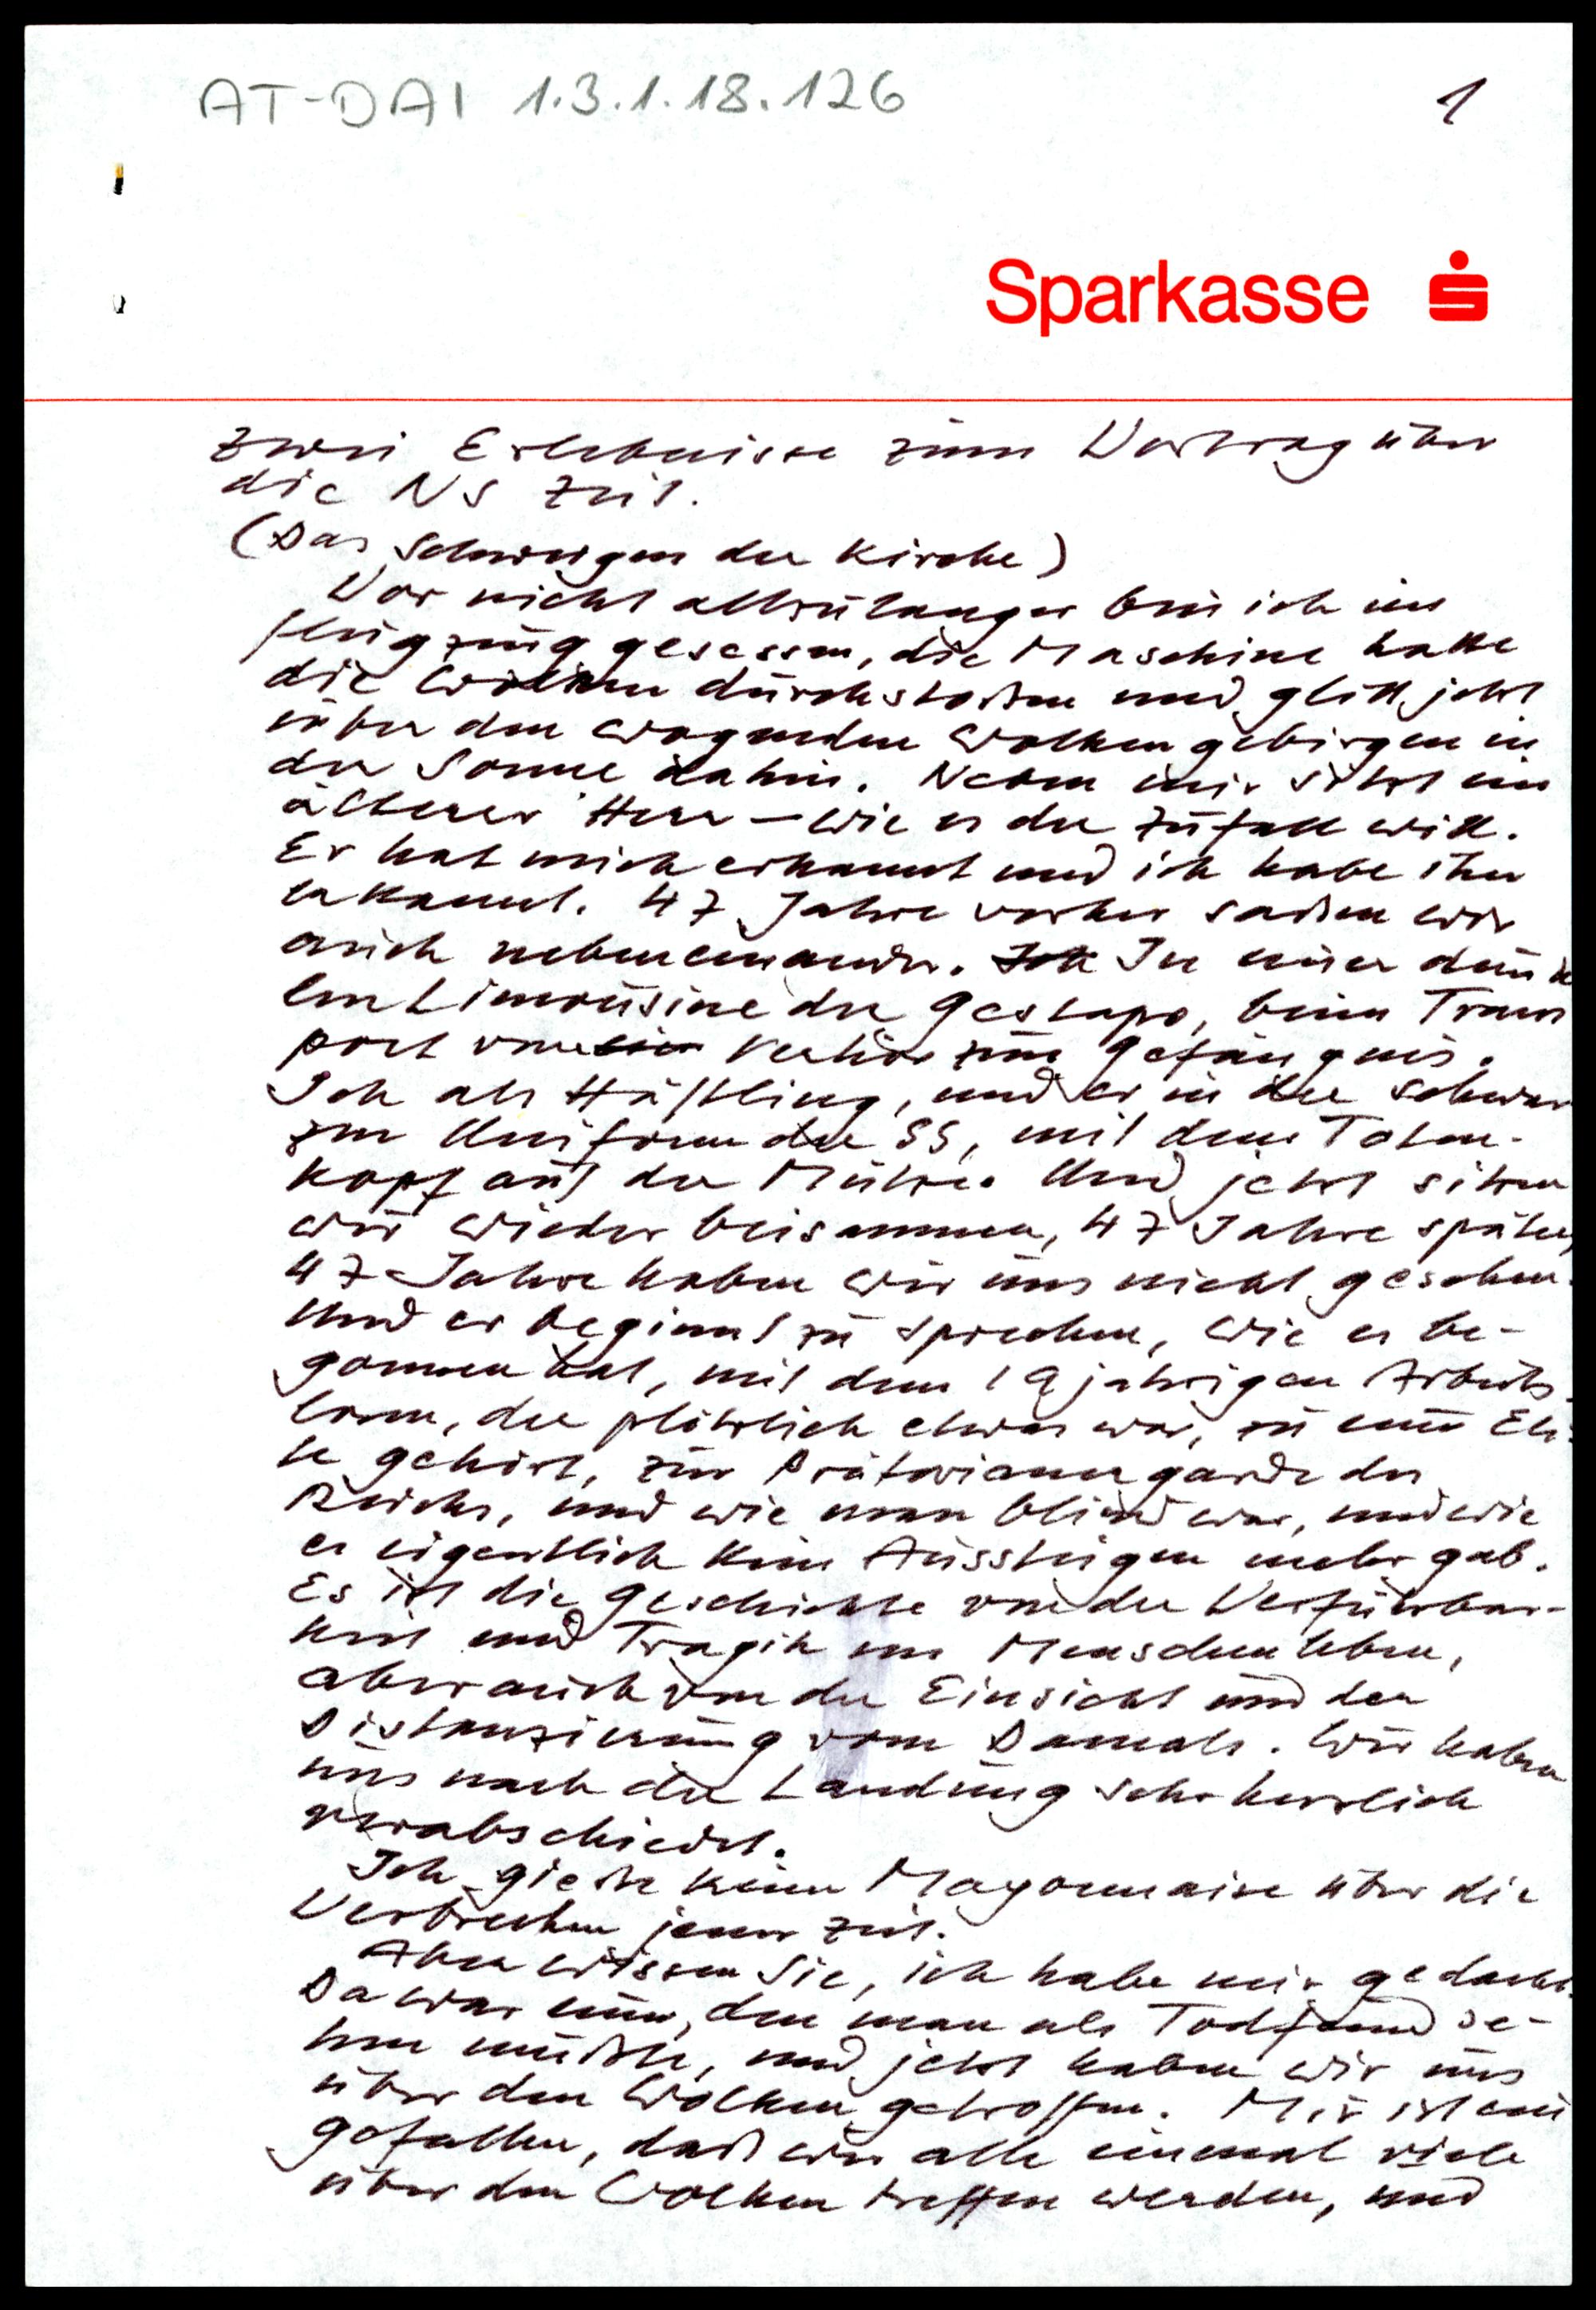 AT-DAI 1.3.1.18.126
1
Sparkasse
Zwei Erlebnisse zum Vortrag über
die NS Zeit.
(Das Schweigen der Kirche)
Vor nicht allzulanger bin ich im
Flugzeug gesessen, die Maschine hatte
die Wolken durchstoßen und glitt jetzt
über den wogenden Wolkengebirgen in
der Sonne dahin. Neben mir sitzt ein
älterer Herr – wie es der Zufall will.
Er hat mich erkannt und ich habe ihn
erkannt. 47 Jahre vorher saßen wir
auch nebeneinander. In einer dunk
len Limousine der Gestapo, beim Trans
port vom Verhör zum Gefängnis.
Ich als Häftling, und er in der schwar
zen Uniform der SS, mit dem Toten-
kopf auf der Mütze. Und jetzt sitzen
wir wieder beisammen, 47 Jahre später,
47 Jahre haben wir uns nicht gesehen.
Und er beginnt zu sprechen, wie es be-
gonnen hat, mit dem 19 jährigen Arbeits-
losen, der plötzlich etwas war, zu einer Eli-
te gehört, zur Prätorianergarde des
Reichs, und wie man blind war, und wie
es eigentlich kein Aussteigen mehr gab.
Es ist die Geschichte von der Verführbar-
keit und Tragik im Menschenleben,
aber auch von der Einsicht und der
Distanzierung vom Damals. Wir haben
uns nach der Landung sehr herzlich
verabschiedet.
Ich gieße keine Mayonnaise über die
Verbrechen jener Zeit.
Aber wissen Sie, ich habe mir gedacht.
Da war einer, den man als Todfeind se-
hen mußte, und jetzt haben wir uns
über den Wolken getroffen. Mir ist ein
gefallen, daß wir alle einmal viele
über den Wolken treffen werden, und